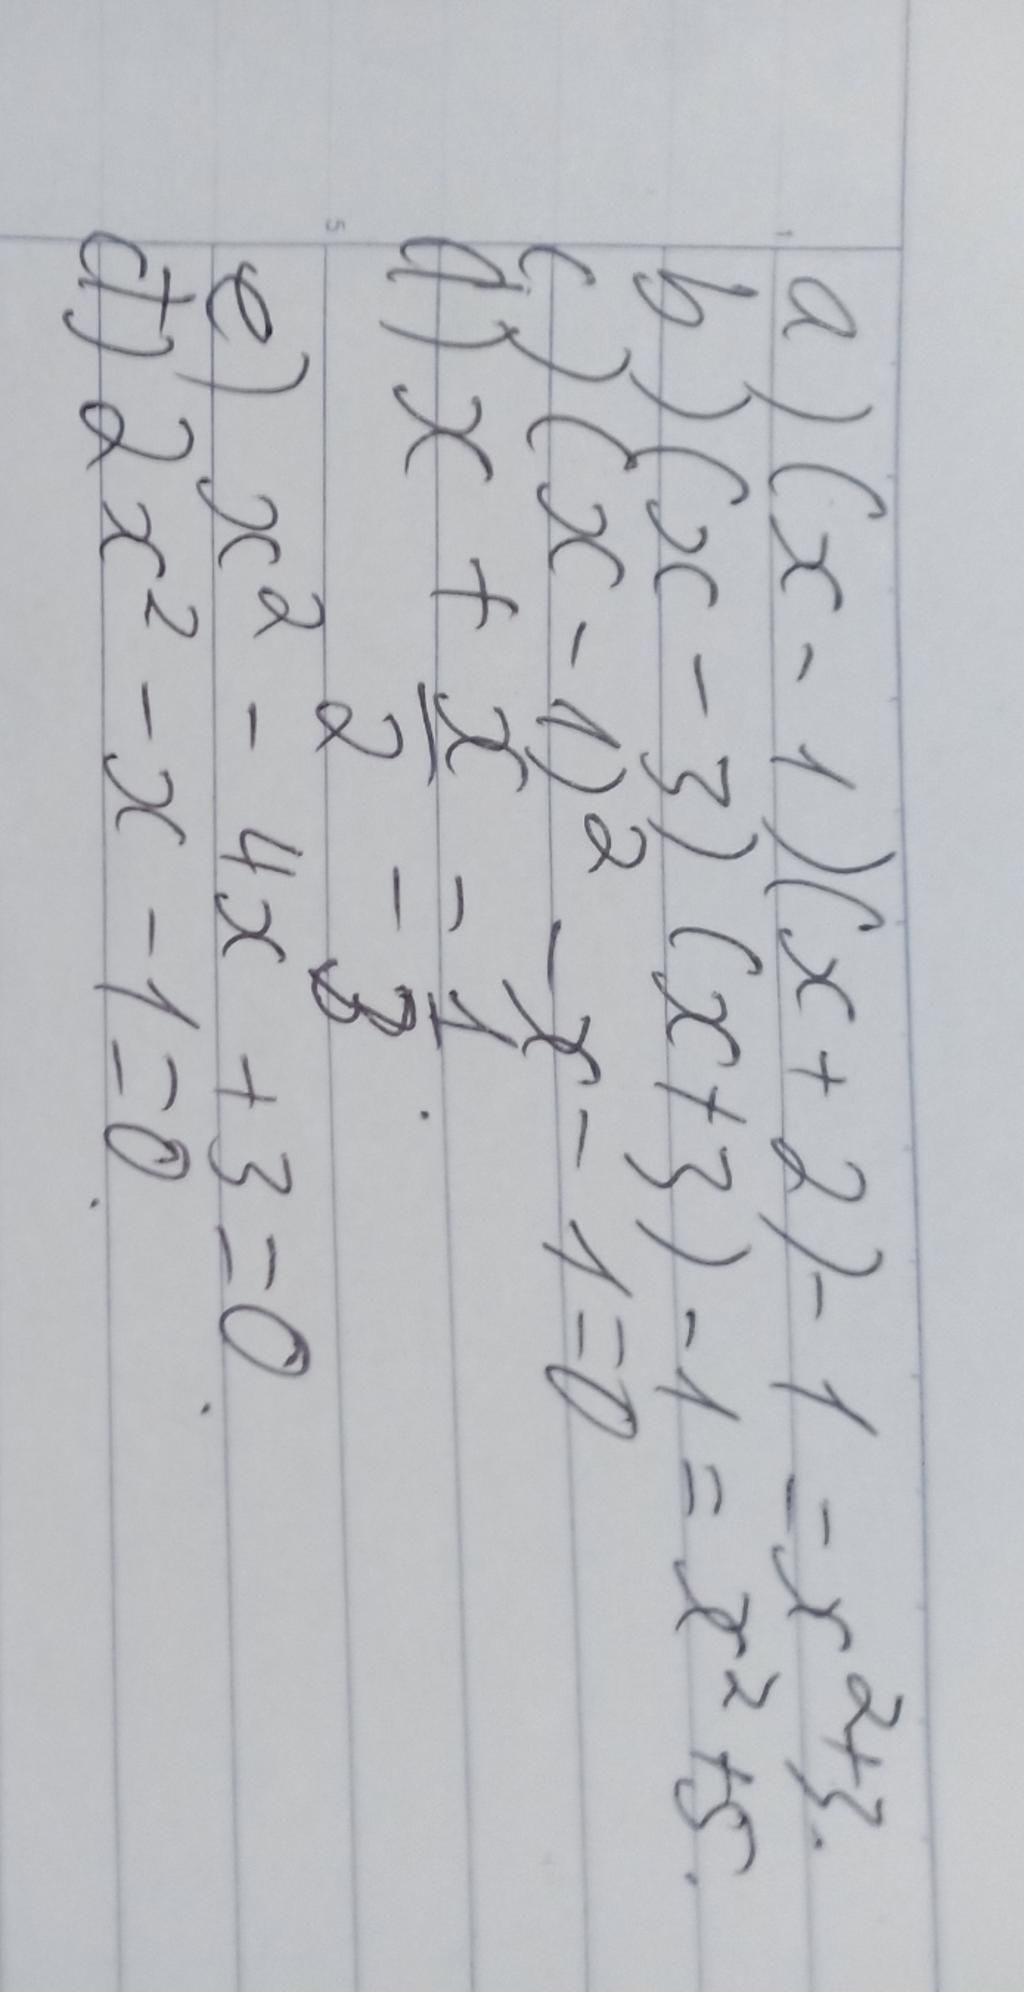 a) (x - 1)(x + 2) - 1 = x² + 3.
b) (x - 3) (x + 3) - 1 = x² + 5.
c) (x - 1)² - x - 1 = 0
d) x + x/2 = 1/3.
e) x² - 4x + 3 = 0.
d) 2x² - x - 1 = 0.
1
5